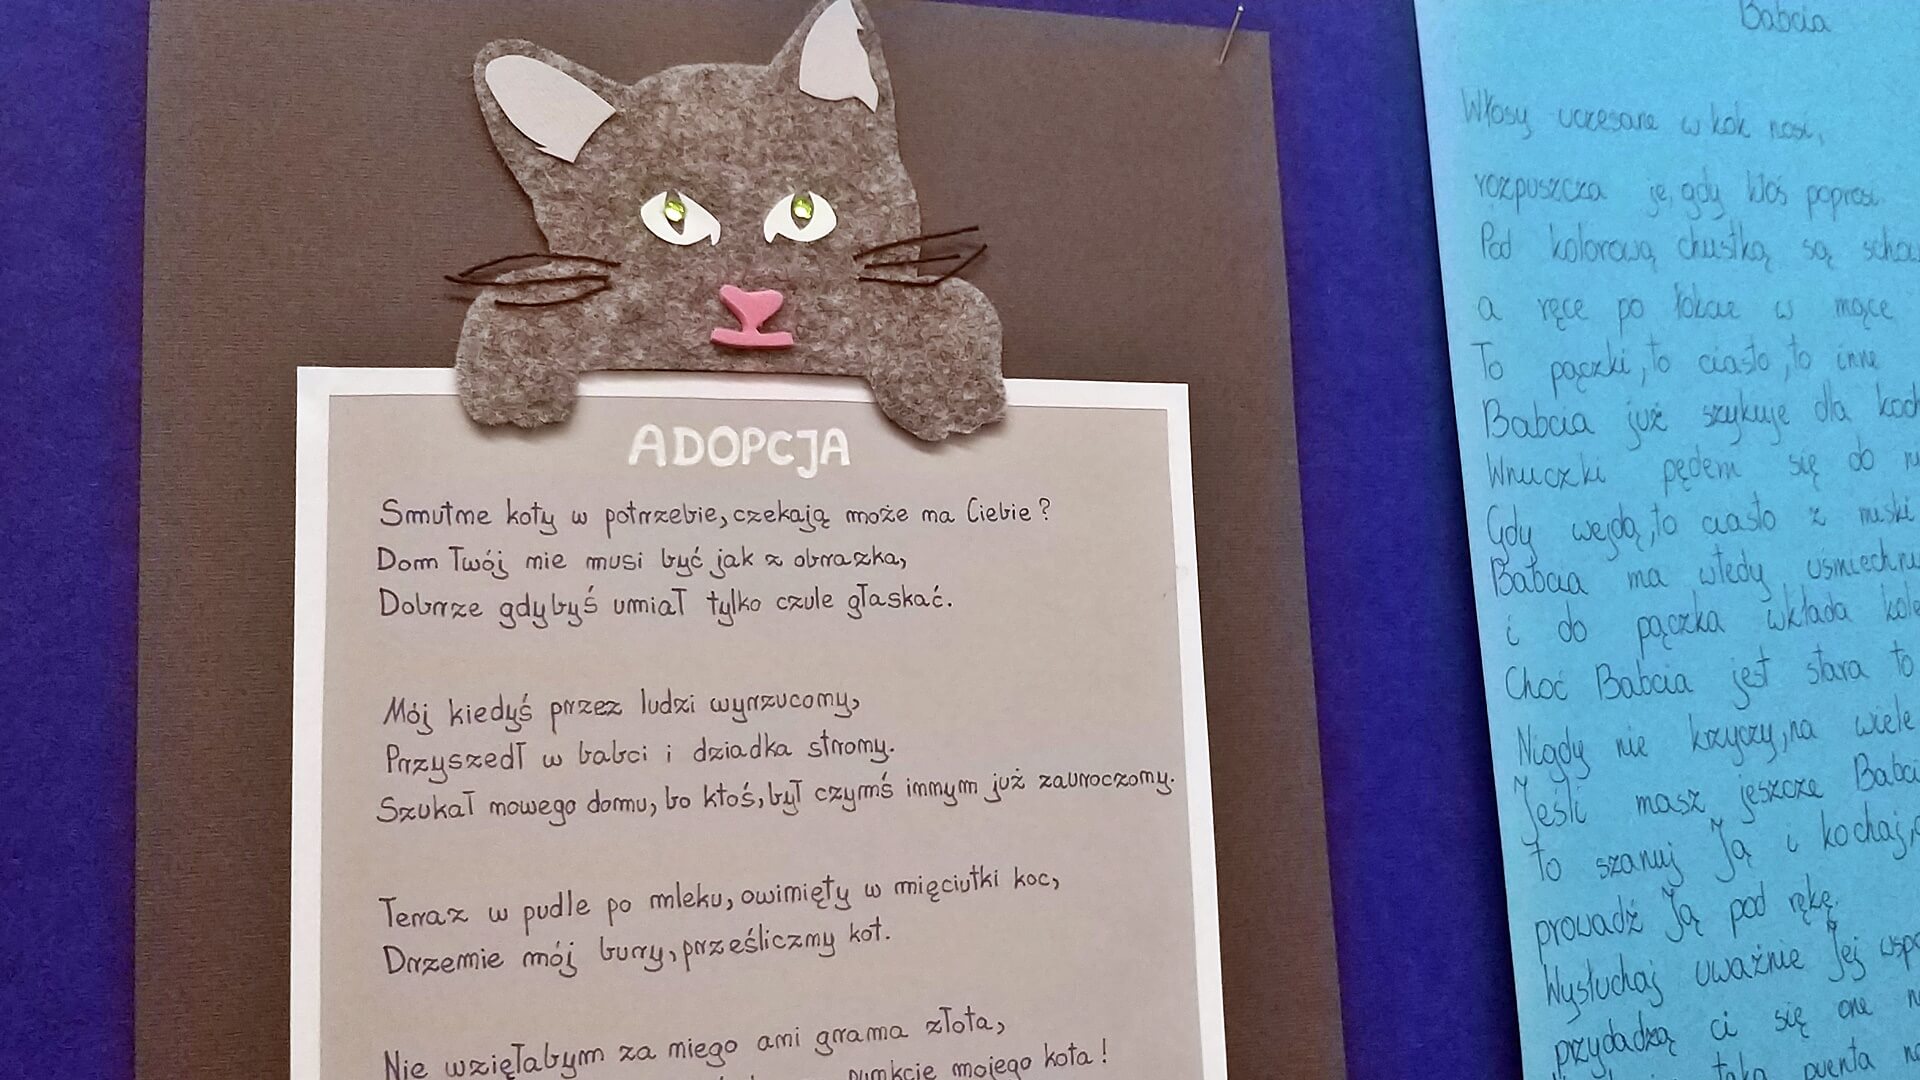 ADOPCJA
Smutne koty w potrzebie, czekają może na Ciebie?
Dom Twój nie musi być jak z obrazka,
Dobrze gdybyś umiał tylko czule głaskać.
Mój kiedyś przez ludzi wyrzucony,
Przyszedł w babci i dziadka strony.
Szukał nowego domu, bo ktoś, był czymś innym już zauroczony.
Teraz w pudle po mleku, owinięty w mięciutki koc,
Drzemie mój bury, prześliczny kot.
Nie wzięłabym za niego ani grama złota,
punkcie mojego kota!
Babcia
Włosy uczesane w kok nosi,
rozpuszcza je, gdy ktoś poprosi.
Pod kolorową chustką są
a ręce po łokcie w mące
To pączki, to ciasto, to inne
Babcia już szykuje dla
Wnuczki pędem się do
Gdy wejdą, to ciasto z
Babcia ma wtedy
i do pączka wkłada
Choć Babcia jest stara to
Nigdy nie krzyczy, na wiele
Jeśli masz jeszcze
to szanuj Ją i kochaj,
prowadź Ją pod rękę.
Wysłuchaj uważnie Jej
przydadzą ci się one
taka puenta